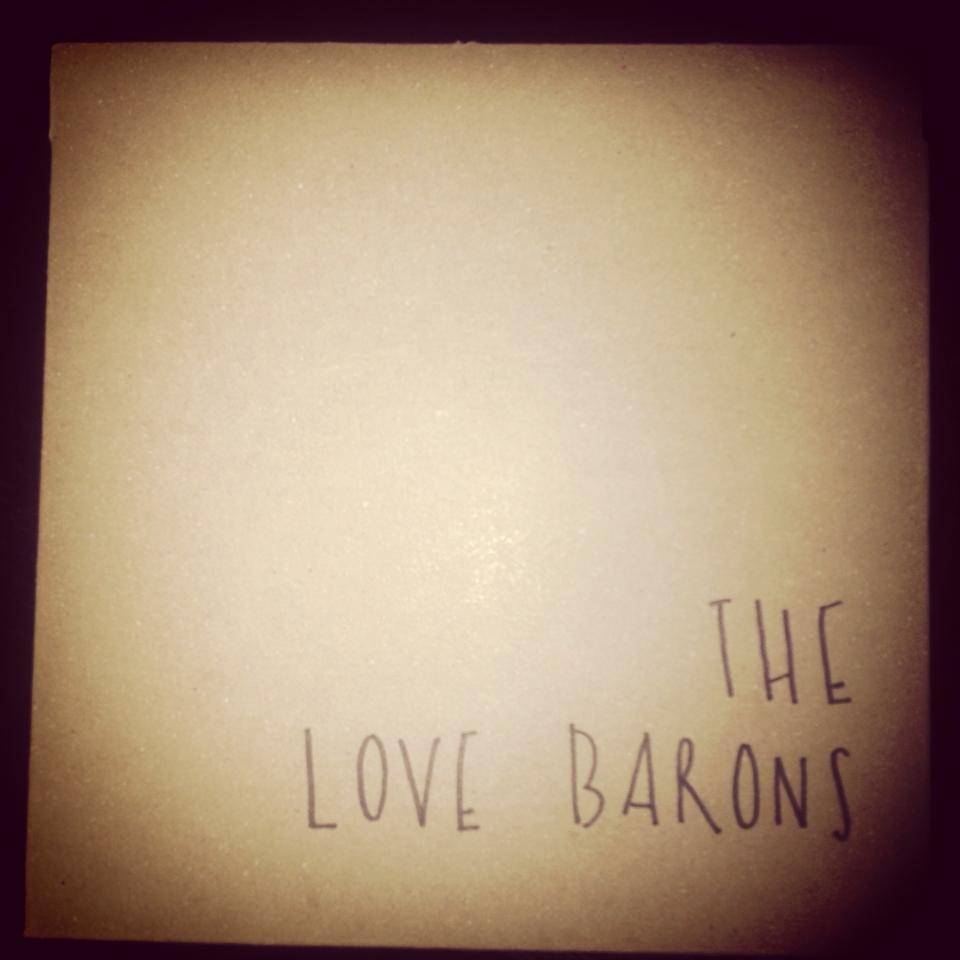 THE
LOVE BARONS